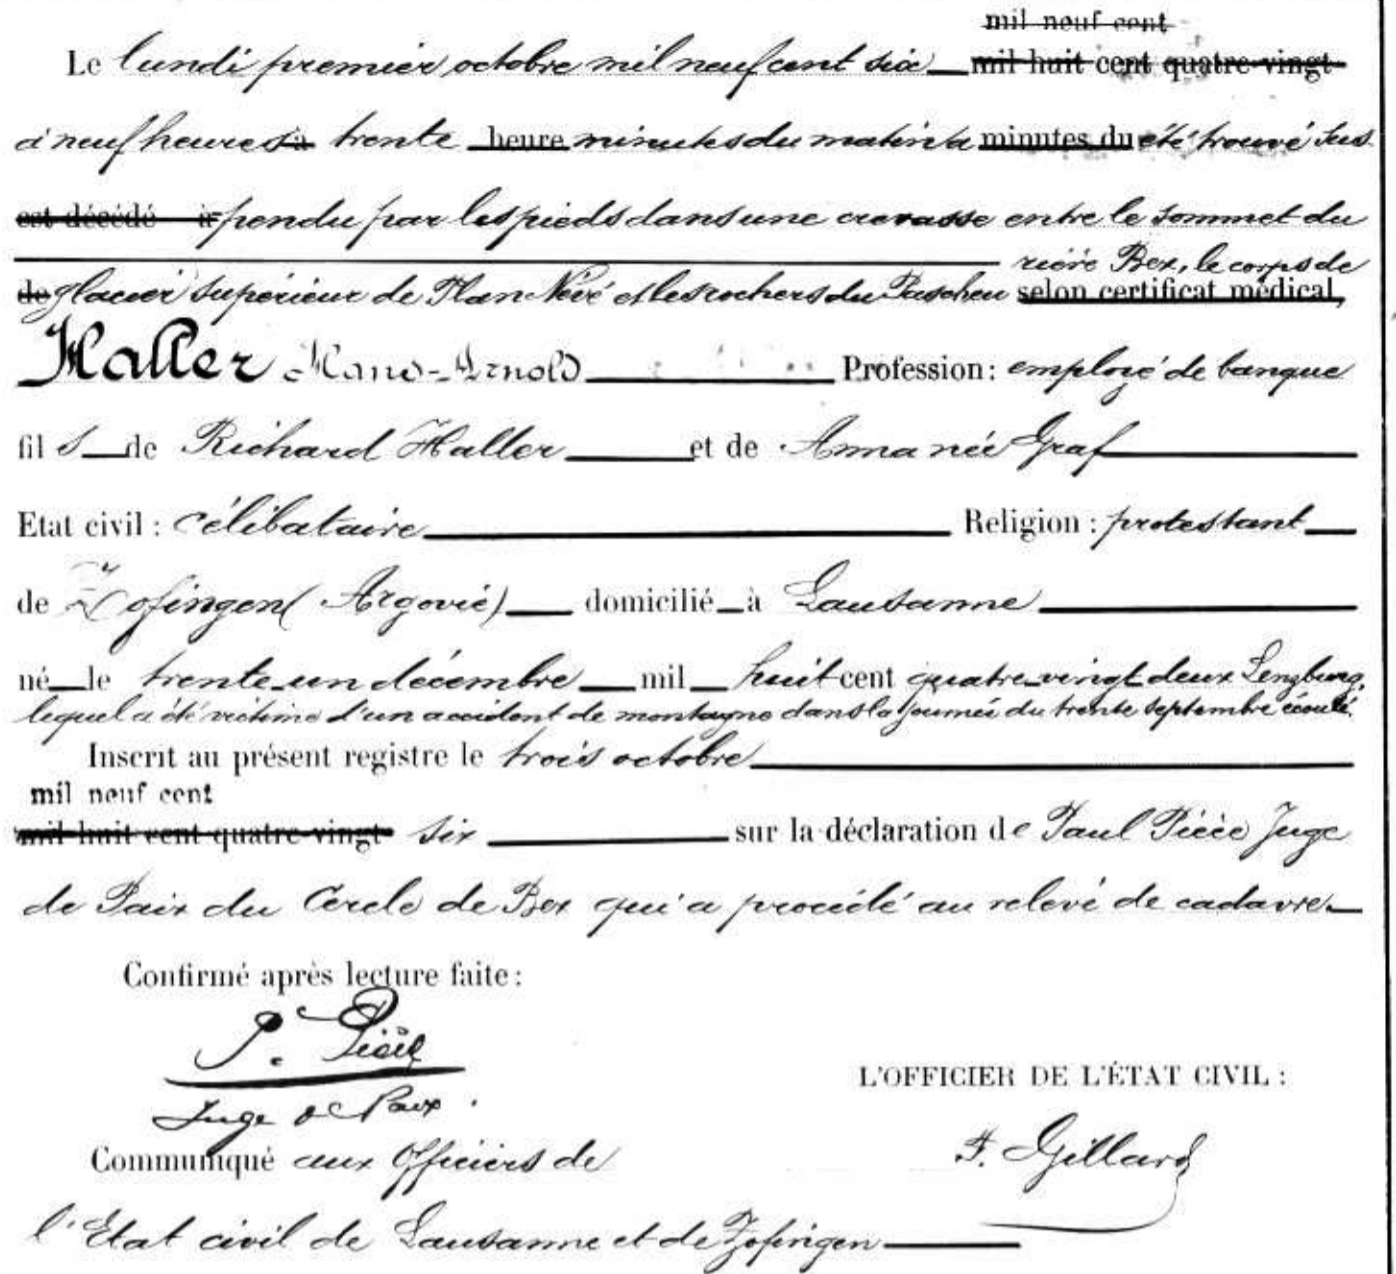 mil neuf cent
Le lundi premier octobre mil neuf cent six mil huit cent quatre-vingt
à neuf heures à trente heure minutes du matin a minutes du été trouvé sus
est décédé à pendu par les pieds dans une crevasse entre le sommet du
rière Bex, le corps de
de glacier supérieur de Plan Névé et les rochers du Pascheu selon certificat médical,
Haller Hans-Arnold Profession: employé de banque
fil s de Richard Haller et de Anna née Graf
Etat civil : célibataire Religion : protestant
de Zofingen (Argovie) domicilié à Lausanne
né le trente-un décembre mil huit cent quatre-vingt deux Lenzburg,
lequel a été victime d'un accident de montagne dans la journée du trente septembre écoulé.
Inscrit au présent registre le trois octobre
mil neuf cent
mil huit cent quatre-vingt six sur la déclaration de Paul Pièce Juge
de Paix du Cercle de Bex qui a procédé au relevé de cadavre
Confirmé après lecture faite :
P. Pièce
Juge de Paix.
L'OFFICIER DE L'ÉTAT CIVIL :
F. Gillard
Communiqué aux Officiers de
l'Etat civil de Lausanne et de Zofingen